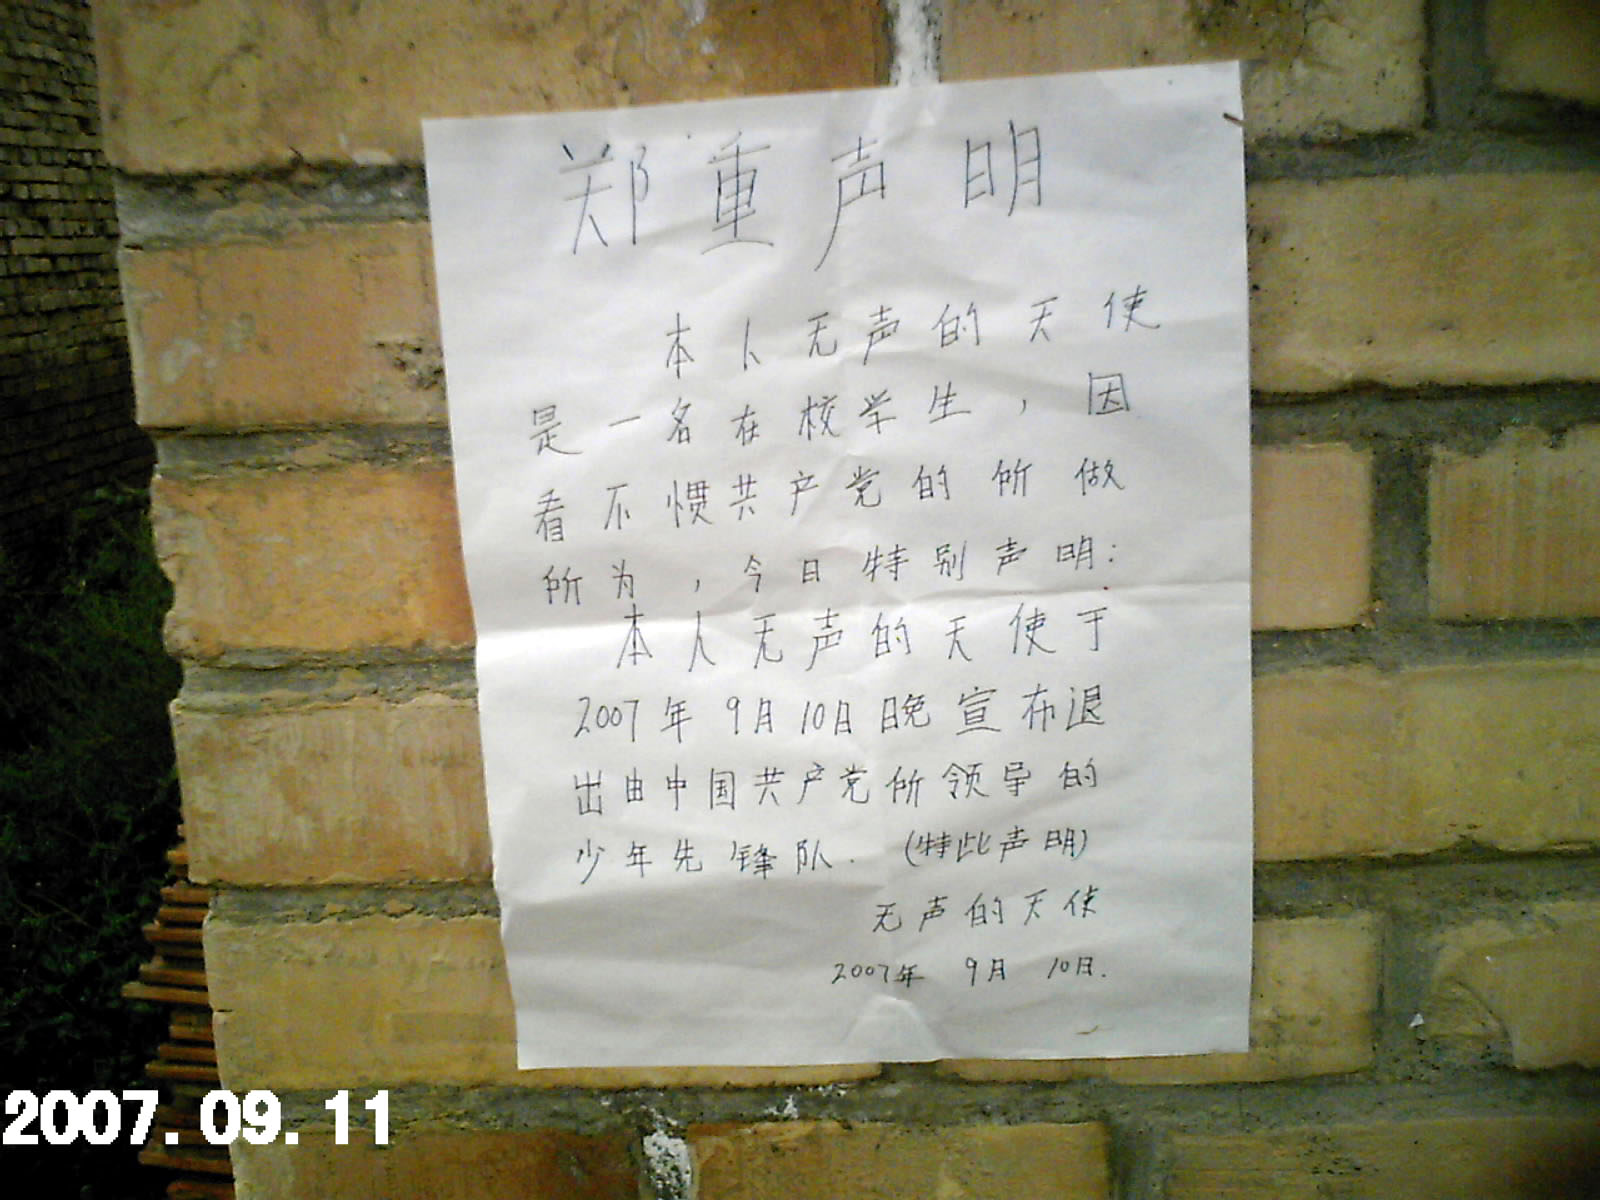 郑重声明
本人无声的天使
是一名在校学生，因
看不惯共产党的所做
所为，今日特别声明：
本人无声的天使于
2007年9月10日晚宣布退
出由中国共产党所领导的
少年先锋队.（特此声明）
无声的天使
2007年 9月 10日.
2007.09.11